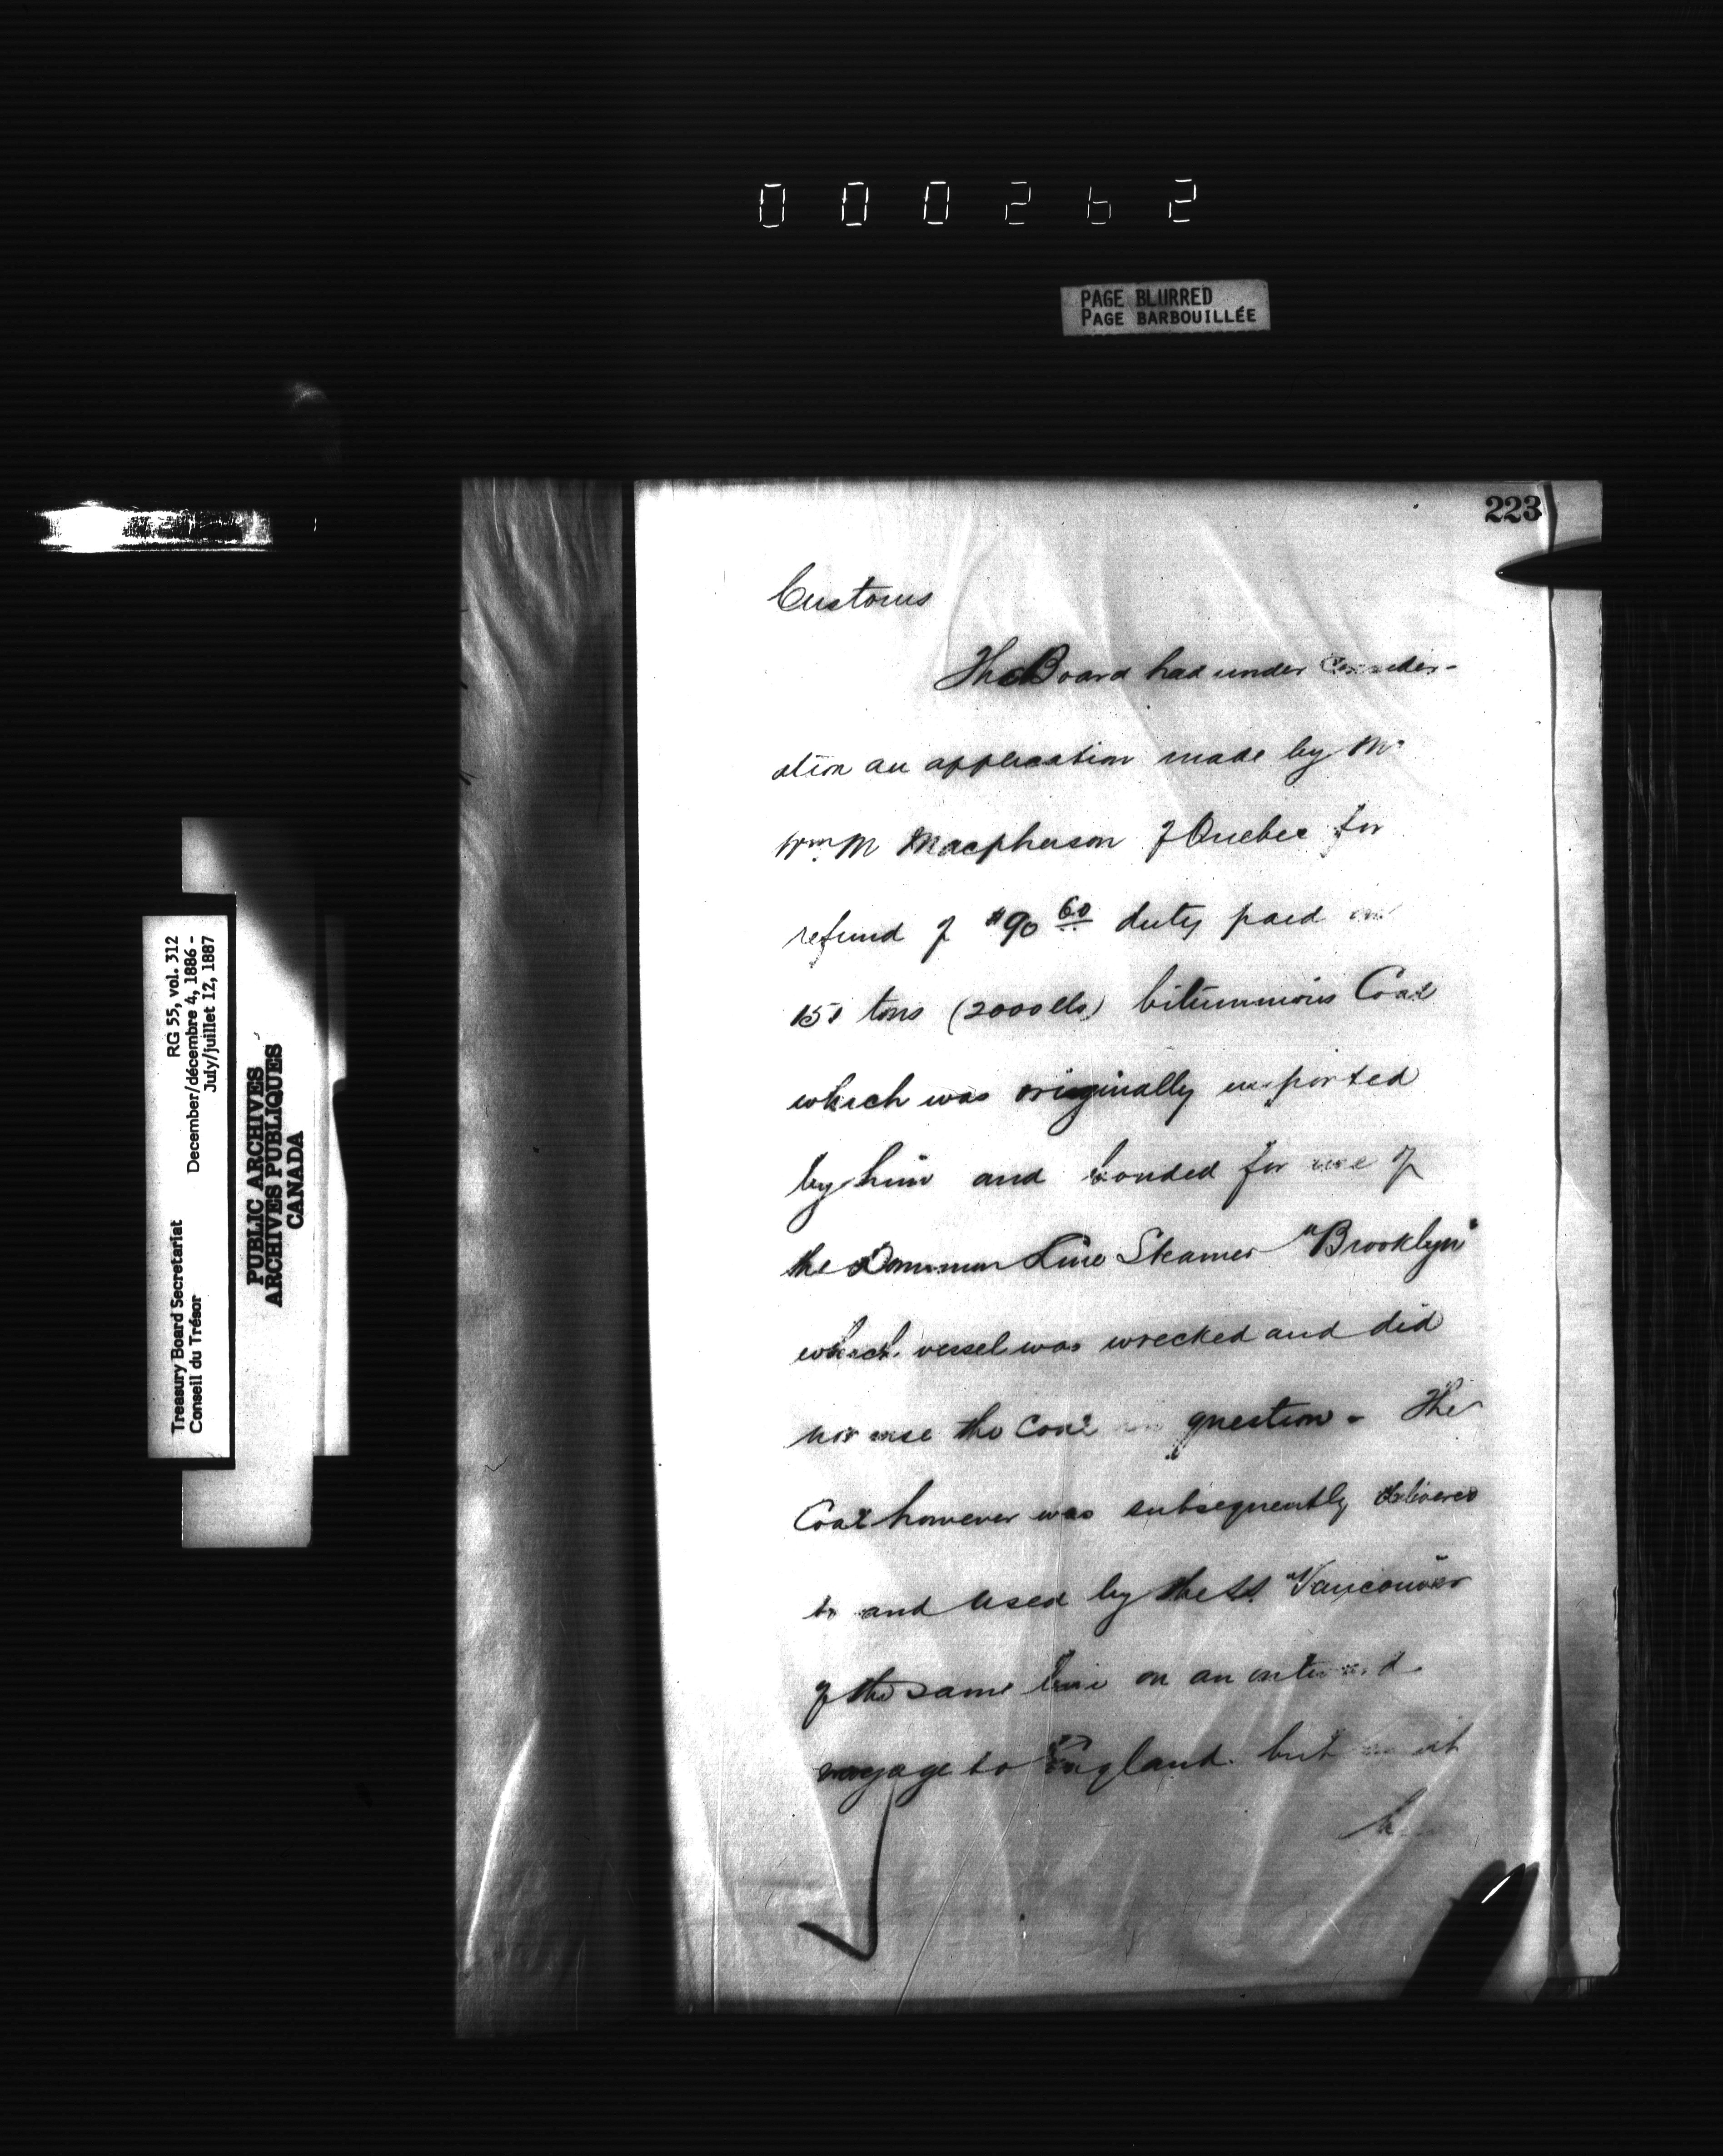 000262
PAGE BLURRED
PAGE BARBOUILLÉE
223
Treasury Board Secretariat RG 55, vol. 312
Conseil du Trésor December/décembre 4, 1886 -
July/juillet 12, 1887
PUBLIC ARCHIVES
ARCHIVES PUBLIQUES
CANADA
Customs
The Board had under Consider-
ation an application made by Mr
Wm M Macpherson of Quebec for
refund of $90 60 duty paid on
151 tons (2000 lbs) bituminous Coal
which was originally imported
by him and bonded for use of
the Dominion Line Steamer "Brooklyn"
which vessel was wrecked and did
not use the Coal in question - The
Coal however was subsequently delivered
to and used by the SS. "Vancouver
of the same line on an outward
voyage to England. but as it